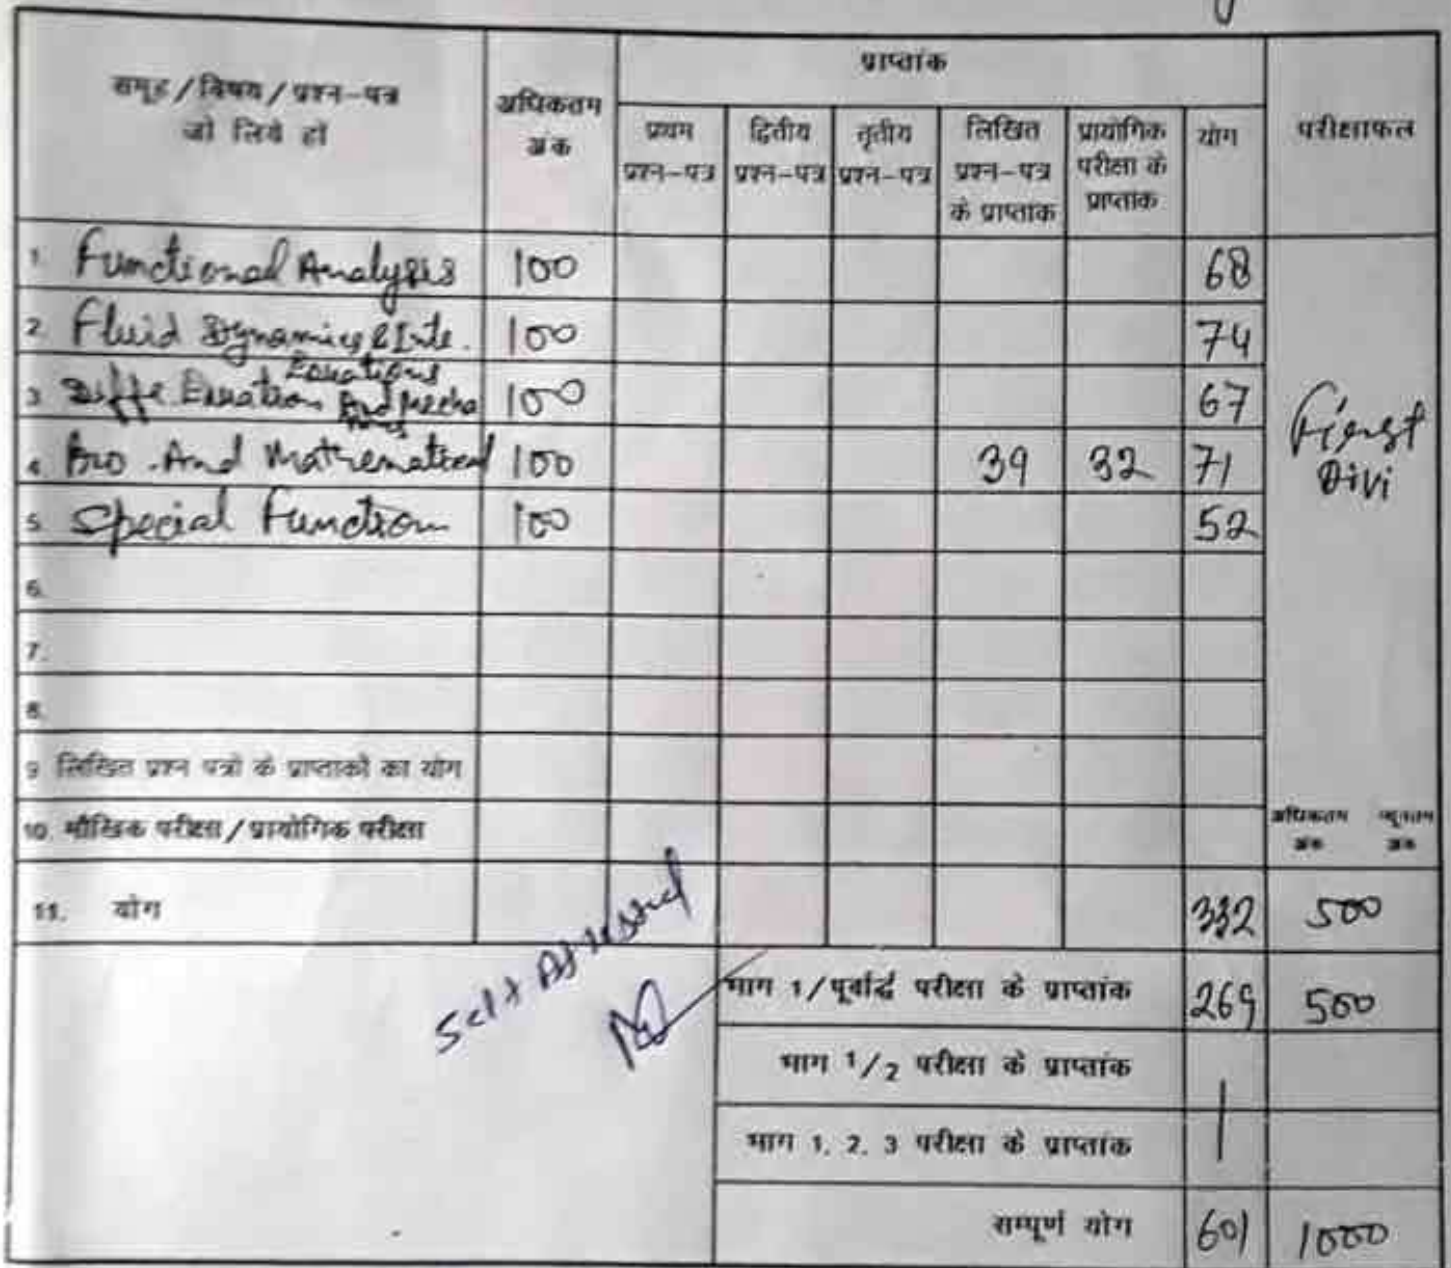 समूह / विषय / प्रश्न-पत्र
जो लिये हों
अधिकतम
अंक
प्राप्तांक
प्रथम
प्रश्न-पत्र
द्वितीय
प्रश्न-पत्र
तृतीय
प्रश्न-पत्र
लिखित
प्रश्न-पत्र
के प्राप्तांक
प्रायोगिक
परीक्षा के
प्राप्तांक
योग
परीक्षाफल
1. Functional Analysis 100 68
2. Fluid Dynamics & Inte. 100 74
Equations
3. Diffe. Equation And Mecha 100 67
4. Bio. And Mathematical 100 39 32 71
5. Special Function 100 52
First
Divi
6.
7.
8.
9 लिखित प्रश्न पत्रों के प्राप्तांकों का योग
10. मौखिक परीक्षा / प्रायोगिक परीक्षा
अधिकतम न्यूनतम
अंक अंक
11. योग 332 500
Self Attested
भाग 1/पूर्वार्द्ध परीक्षा के प्राप्तांक 269 500
भाग 1/2 परीक्षा के प्राप्तांक
भाग 1, 2, 3 परीक्षा के प्राप्तांक
सम्पूर्ण योग 601 1000